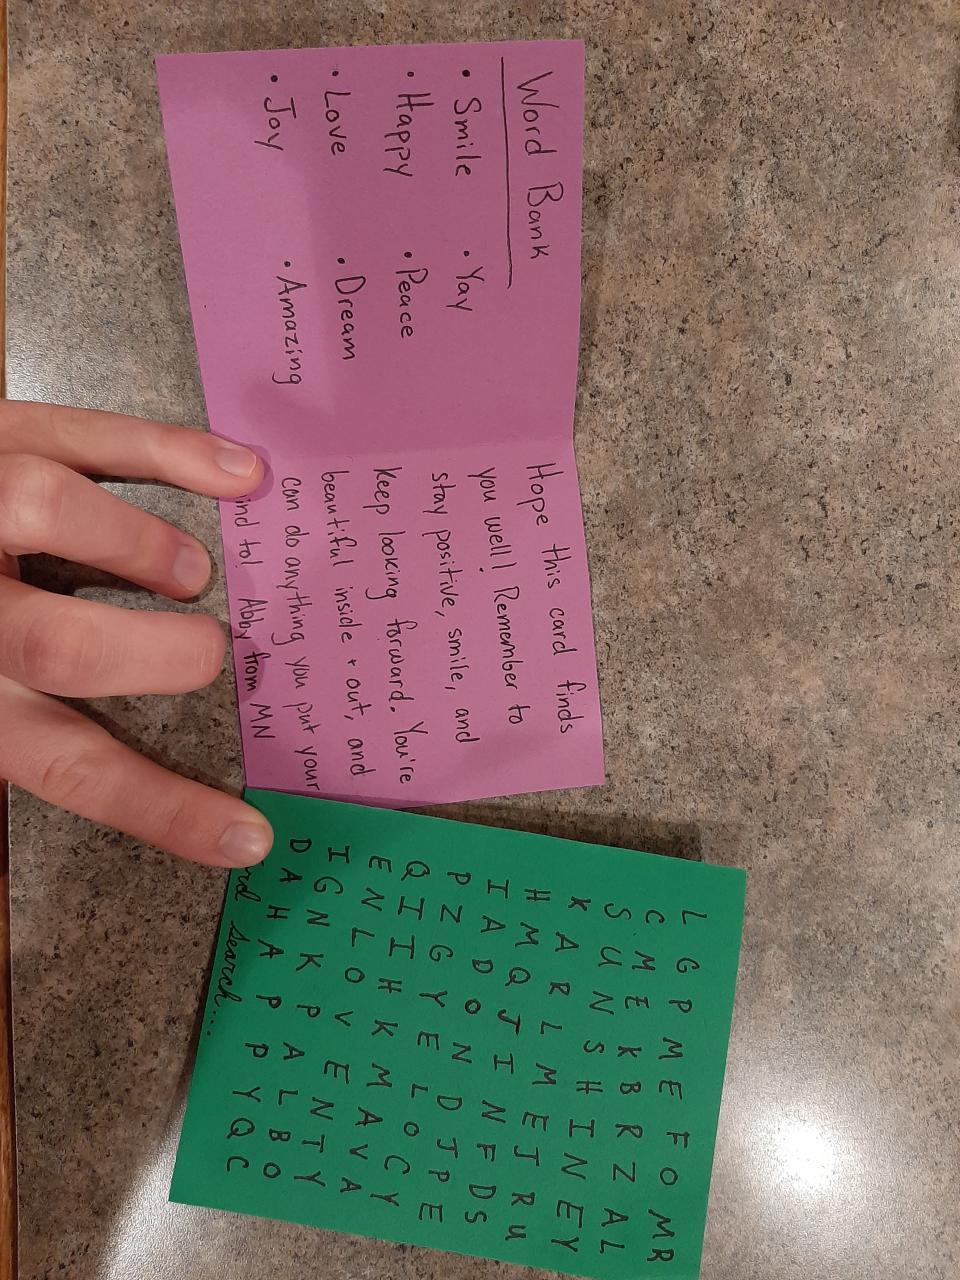 Word Bank
• Smile • Yay
• Happy • Peace
• Love • Dream
• Joy • Amazing
Hope this card finds
you well! Remember to
stay positive, smile, and
keep looking forward. You're
beautiful inside + out, and
can do anything you put your
to! Abby from MN
L G P M E F O M R
C M E K B R Z A L
S U N S H I N E Y
K A R L M E J R U
H M Q J I N F D S
I A D O N D J P E
P Z G Y E L O C Y
Q I I H K M A V A
E N L O V E N T Y
I G N K P A L B O
D A H A P P Y Q C
search...